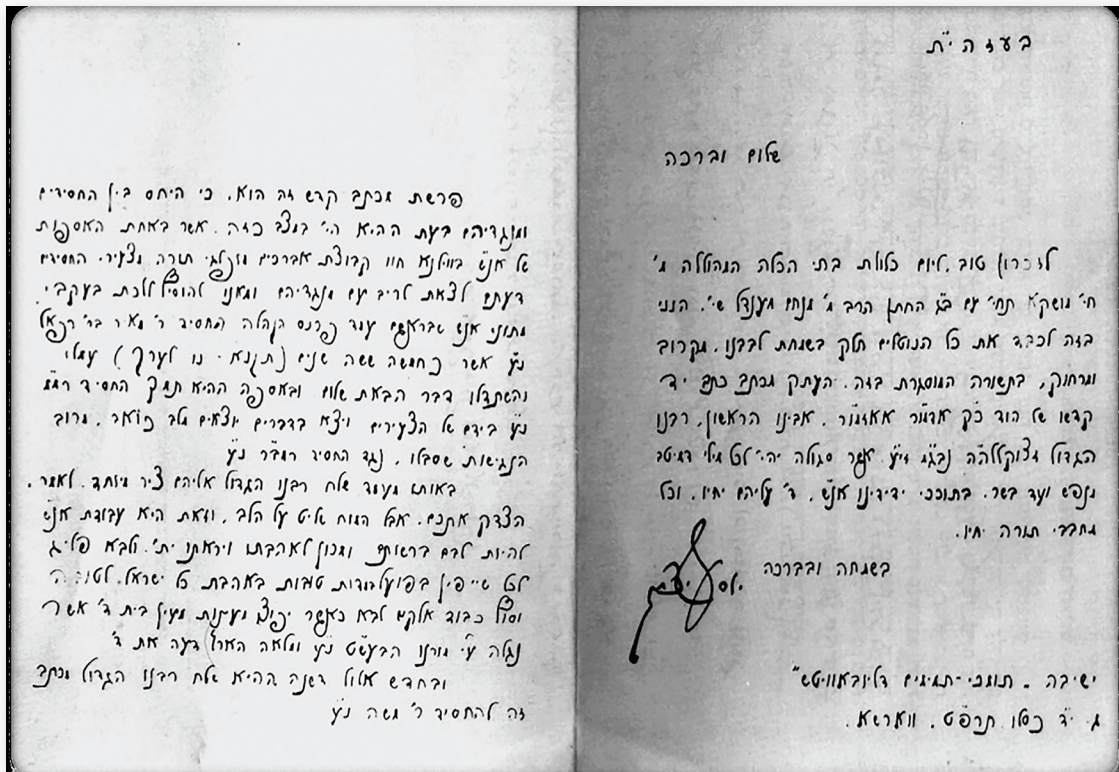 בעזה"ית
שלום וברכה
לזכרון טוב, ליום כלולת בתי הכלה המהוללה מ'
חי' מושקא תחי' עם ב"ג החתן הרב מ' מנחם מענדל שי'. הנני
בזה לכבד את כל הנוטלים חלק בשמחת לבבנו, מקרוב
ומרחוק, בתשורה המוסגרת בזה. העתק מכתב כתב יד
קדשו של הוד כ"ק אדמו"ר אאזמו"ר, אבינו הראשון, רבנו
הגדול נבג"מ זי"ע אשר סגולה יהי' לכל מילי דמיטב
מנפש ועד בשר. בתוככי ידידינו אנ"ש, ד' עליהם יחיו, וכל
מחבבי תורה יחיו.
בשמחה ובברכה
ישיבה - תומכי-תמימים דליובאוויטש"
ג. י"ד כסלו תרפ"ט. ווארשא.
פרשת מכתב קדש זה הוא, כי היחס בין החסידים
ומנגדיהם בעת ההיא הי' במצב כזה, אשר באחת האספות
של אנ"ש בווילנא חוו קבוצת אברכים מופלגי תורה מצעירי החסידים
דעתם לצאת לריב עם מנגדיהם ומאנו להוסיף ללכת בעקבי
מתוני אנ"ש שבראשם עמד פרנס הקהלה החסיד ר' מאיר בר' רפאל
נ"ע אשר כחמשה ששה שנים (תקנ"א - נו לערך) עמלו
והשתדלו דבר הבאת שלום ובאספה ההיא תמך החסיד
נ"ע בידם של הצעירים ויצא בדברים יוצאים מלב כואב, מרוב
הנגישות שסבלו, נגד החסיד נ"ע
באותו מעמד שלח רבנו הגדול אליהם ציר מיוחד, לאמר,
הצדק אתכם, אבל המוח שליט על הלב, וזאת היא עבודת אנ"ש
להיות לבם ברשותם ומכון לאהבתו ויראתו ית', ולבא פליג
לכל שייפין בפועל בודות טובות באהבת כל ישראל, לטובה
וסוף כבוד אלקים לבא כאשר יפוצו מעינות מעין בית ד' אשר
נגלה ע"י מורנו הבעש"ט נ"ע ומלאה הארץ דעה את ד'
ובחדש אלול דשנה ההיא שלח רבנו הגדול מכתב
זה להחסיד ר' משה נ"ע